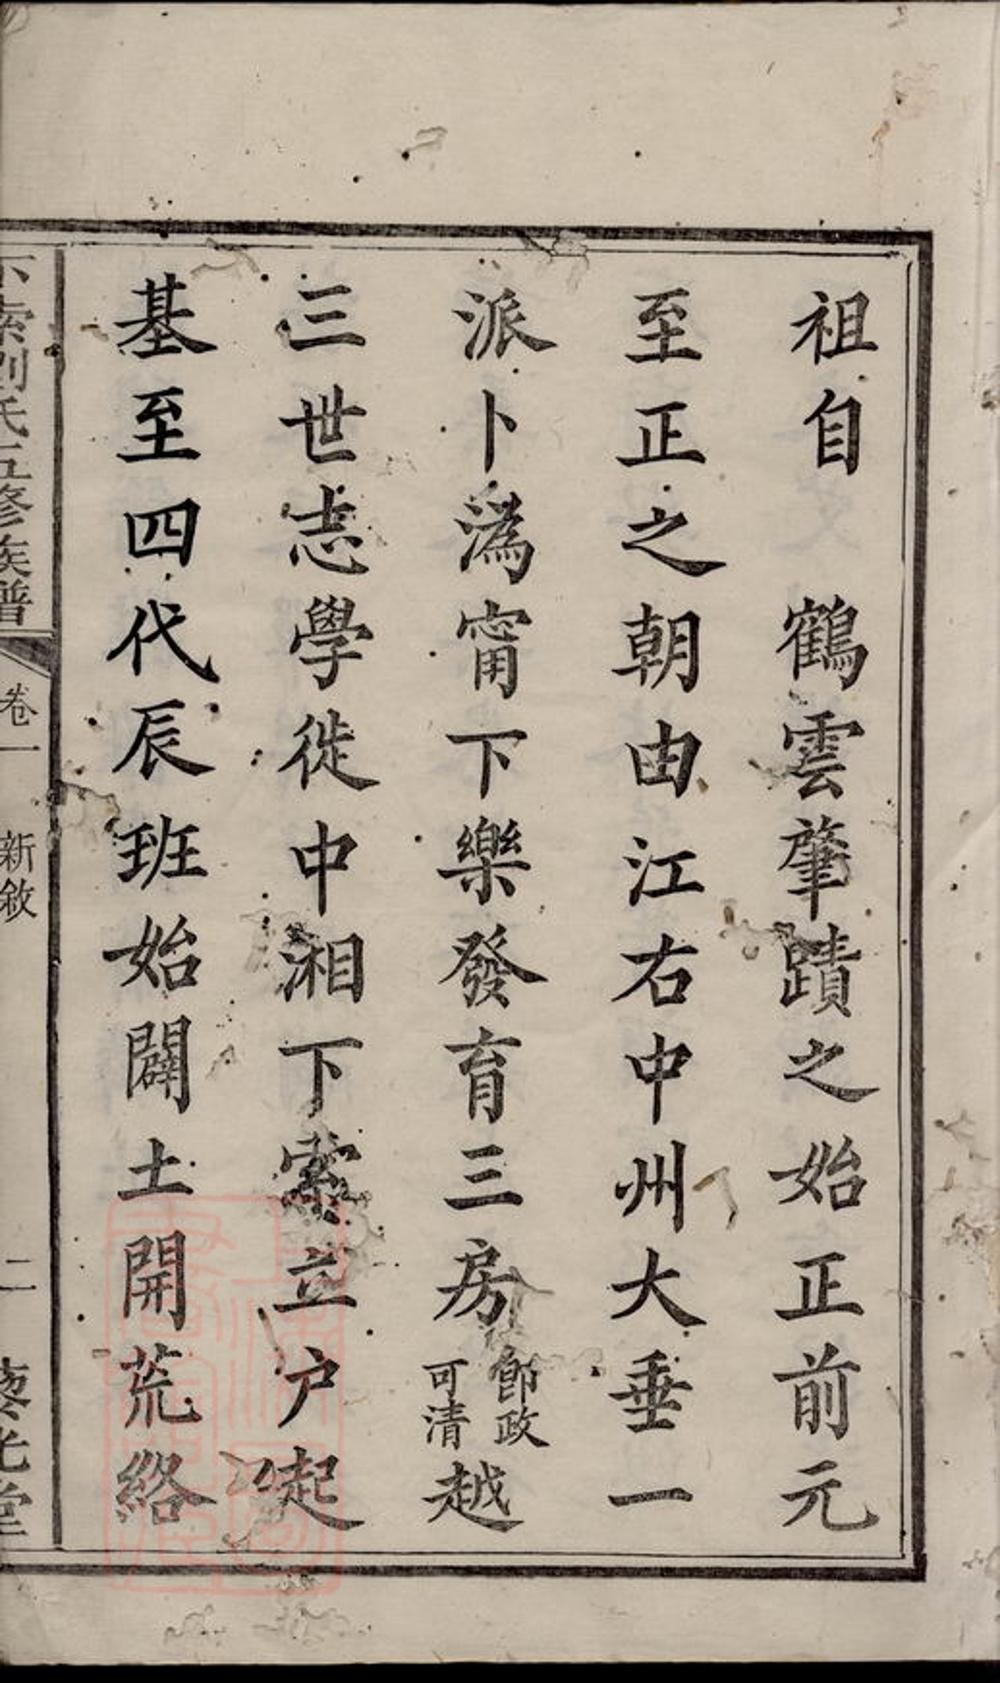 祖自　鶴雲肇蹟之始正前元
至正之朝由江右中州大垂一
派卜溈甯下樂發育三房
節政
可清
越
三世志學徙中湘下索立户起
基至四代辰班始闢土開荒綹
下索劉氏五修族譜
卷一
新敘
二
藜光堂